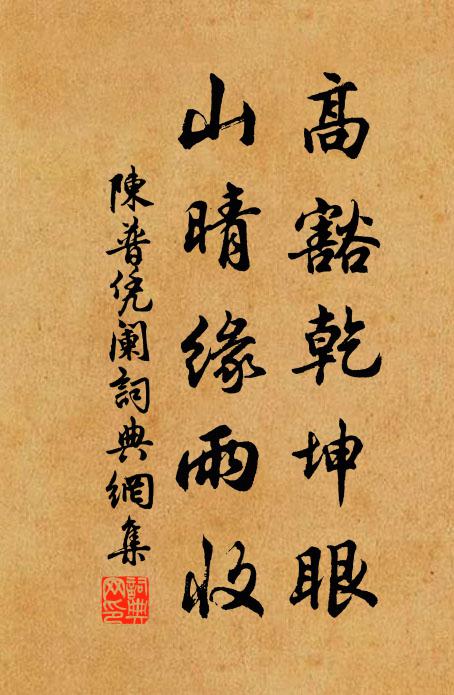 高豁乾坤眼
山晴緣雨收
陳普凭闌詞典網集
詞典網印